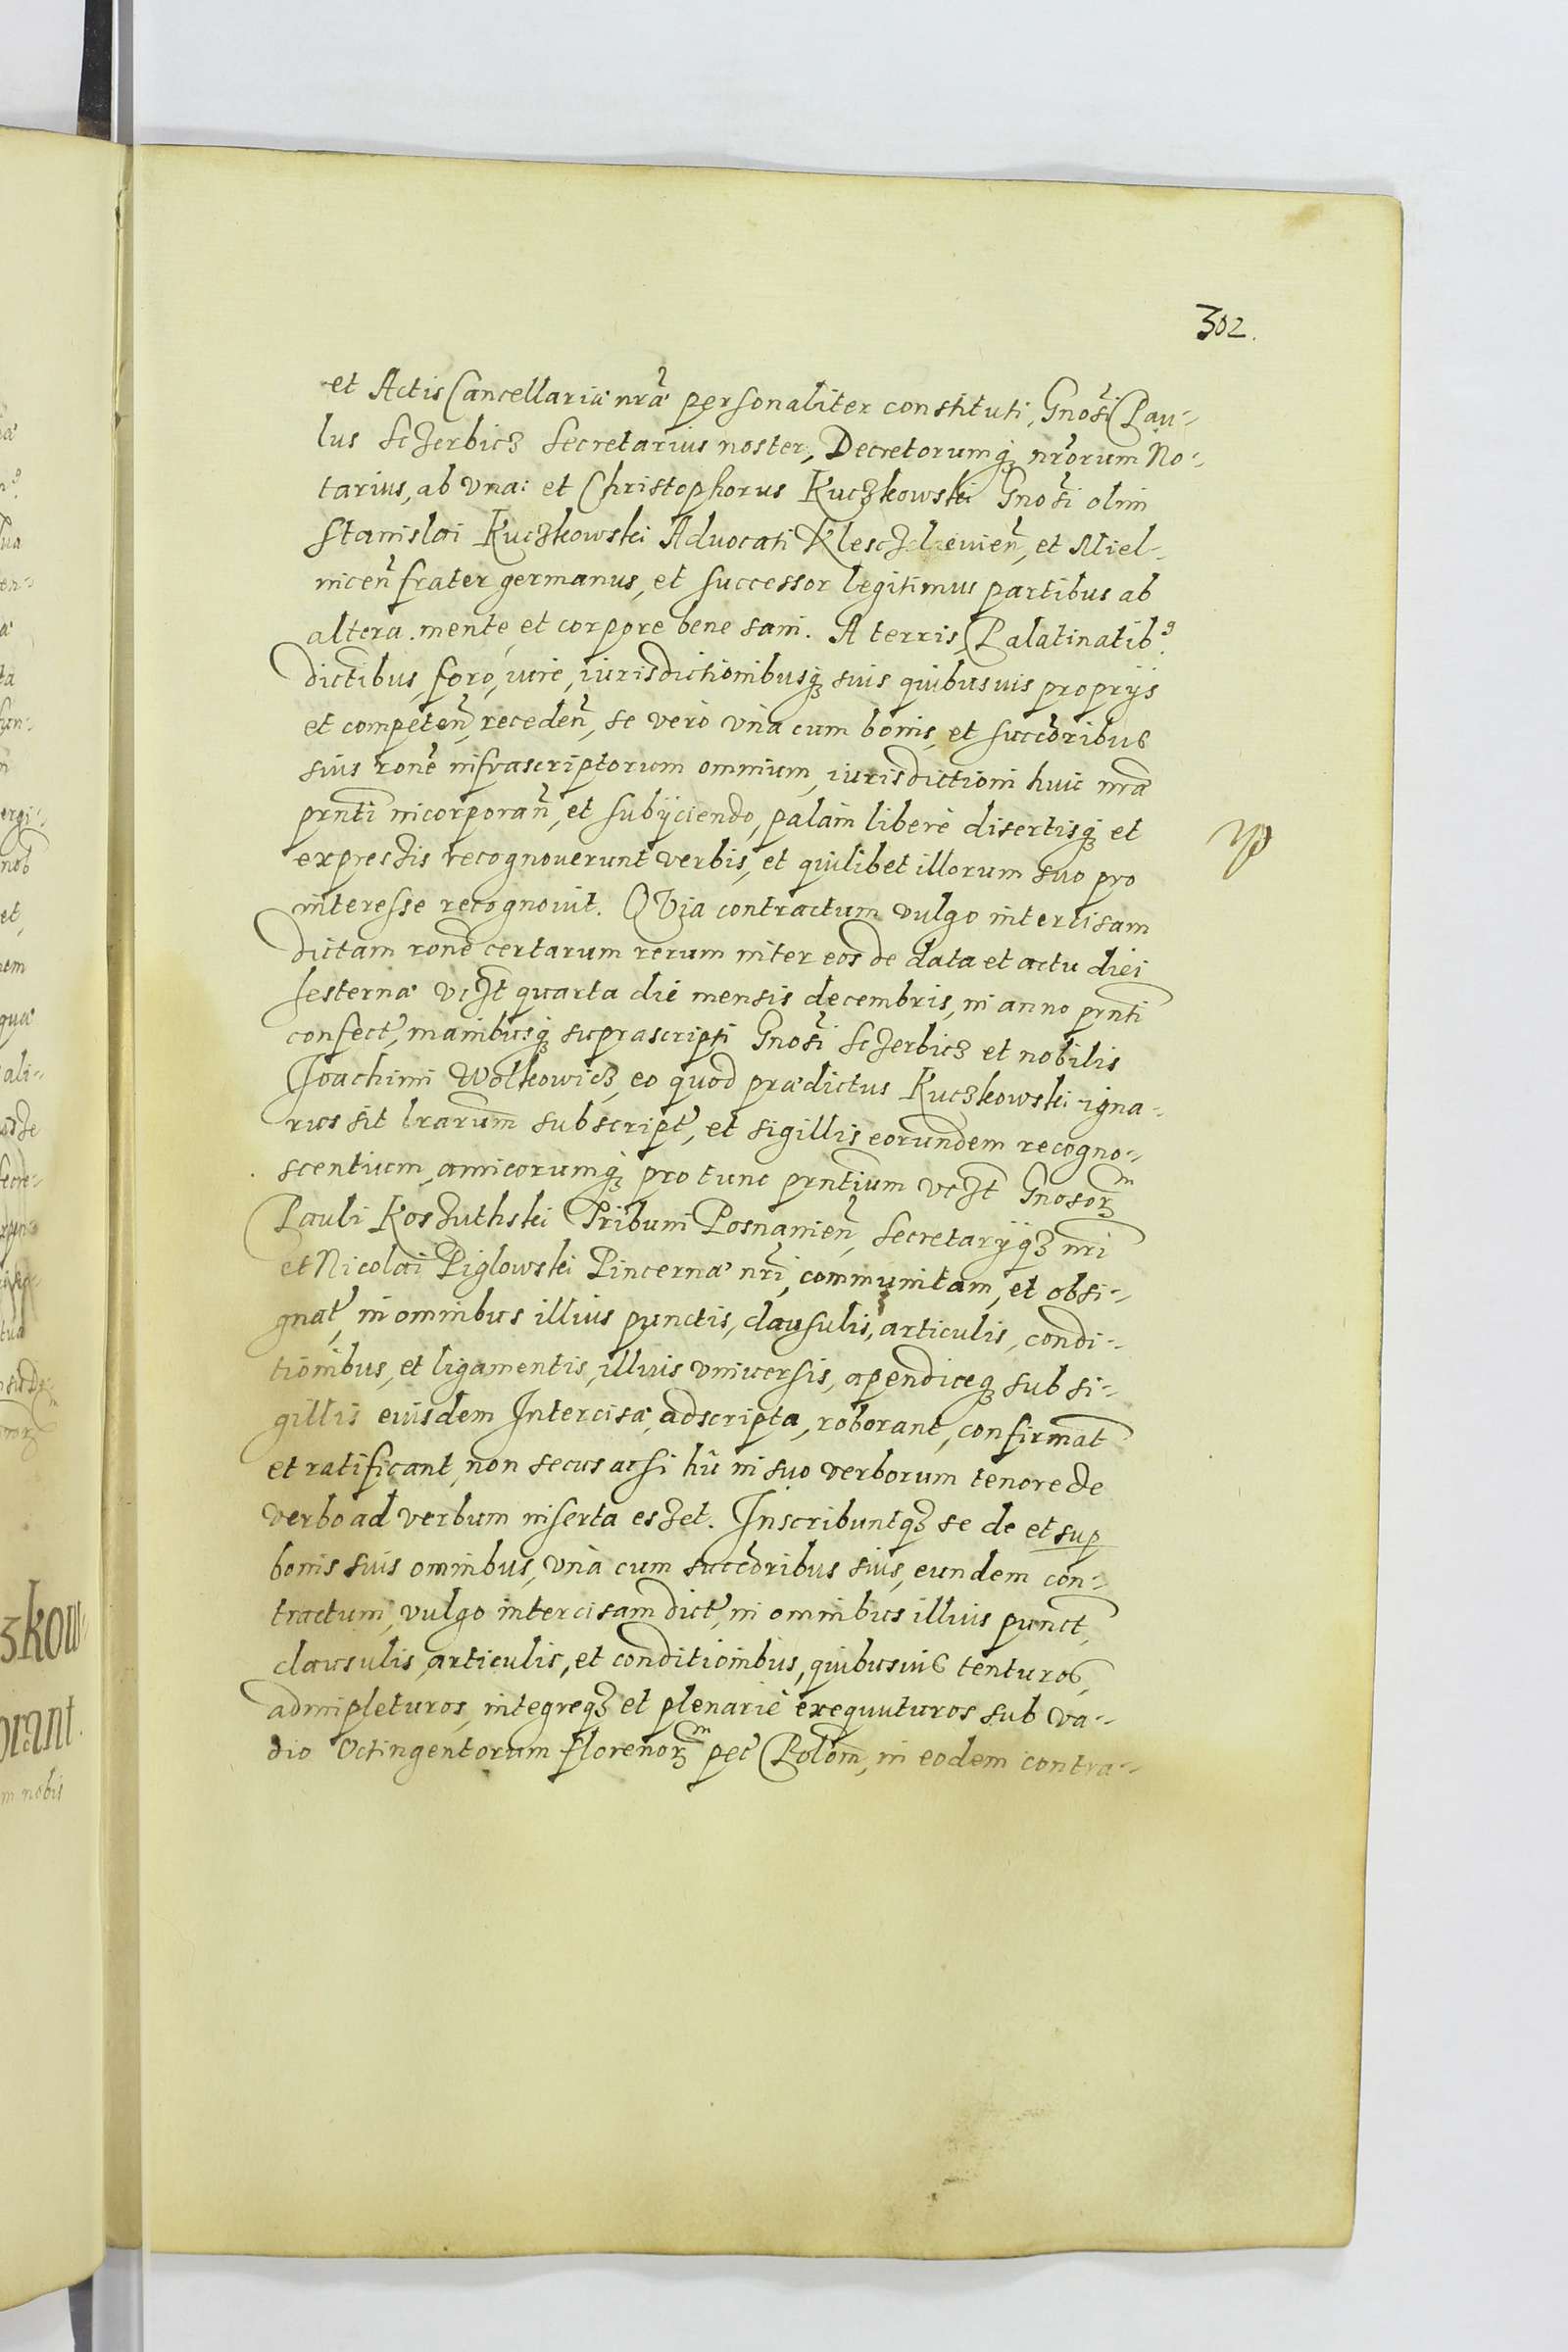 302.
et Actis Cancellariæ nr̃æ personaliter constituti, Gnosi Pau-
lus Sczerbicz Secretarius noster, Decretorumq nr̃orum No-
tarius, ab vna: et Christophorus Kuczkowski Gnosi olim
Stanislai Kuczkowski Aduocati Klesczelievien̄, et Miel-
nicen̄ frater germanus, et successor legitimus partibus ab
altera. mente, et corpore bene sani. A terris, Palatinatib9
dictibus, foro, iure, iurisdictionibusq suis quibusuis proprijs
et competen̄, receden̄, se vero vna cum bonis, et succõribus
suis ronẽ infrascriptorum omnium, iurisdictioni huic nr̃a
prñti incorporan̄, et subijciendo, palam libere disertisq et
expressis recognouerunt verbis, et quilibet illorum suo pro
interesse recognouit. QVia contractum vulgo intercisam
dictam ronẽ certarum rerum inter eos de data et actu diei
hesternæ vczt quarta die mensis decembris, in anno prñti
confect, manibusq suprascripti Gnosi Sczerbicz et nobilis
Joachimi Wolkowicz, eo quod prædictus Kuczkowski igna-
rus sit lr̃arum subscript, et sigillis eorundem recogno-
scentium, amicorumq pro tunc prñtium vczt Gnosorz̃m
Pauli Koszuthski Tribuni Posnanien̄, Secretarijqz nr̃i
et Nicolai Piglowski Pincernæ nr̃i, communitam, et obsi-
gnat, in omnibus illius punctis, clausulis, articulis, condi-
tionibus, et ligamentis, illius vniuersis, apendiceq sub si-
gillis eiusdem Intercisæ, adscripta, roborant, confirmat
et ratificant, non secus acsi hũ in suo verborum tenore de
verbo ad verbum inserta esset. Inscribuntqz se de et sup
bonis suis omnibus, vna cum succõribus suis, eundem con-
tractum, vulgo intercisam dict, in omnibus illius punct,
clausulis, articulis, et conditionibus, quibusuis tenturos,
adimpleturos, integreqz et plenarie exequuturos sub va-
dio Octingentorum florenorz̃m pec Polom, in eodem contra-